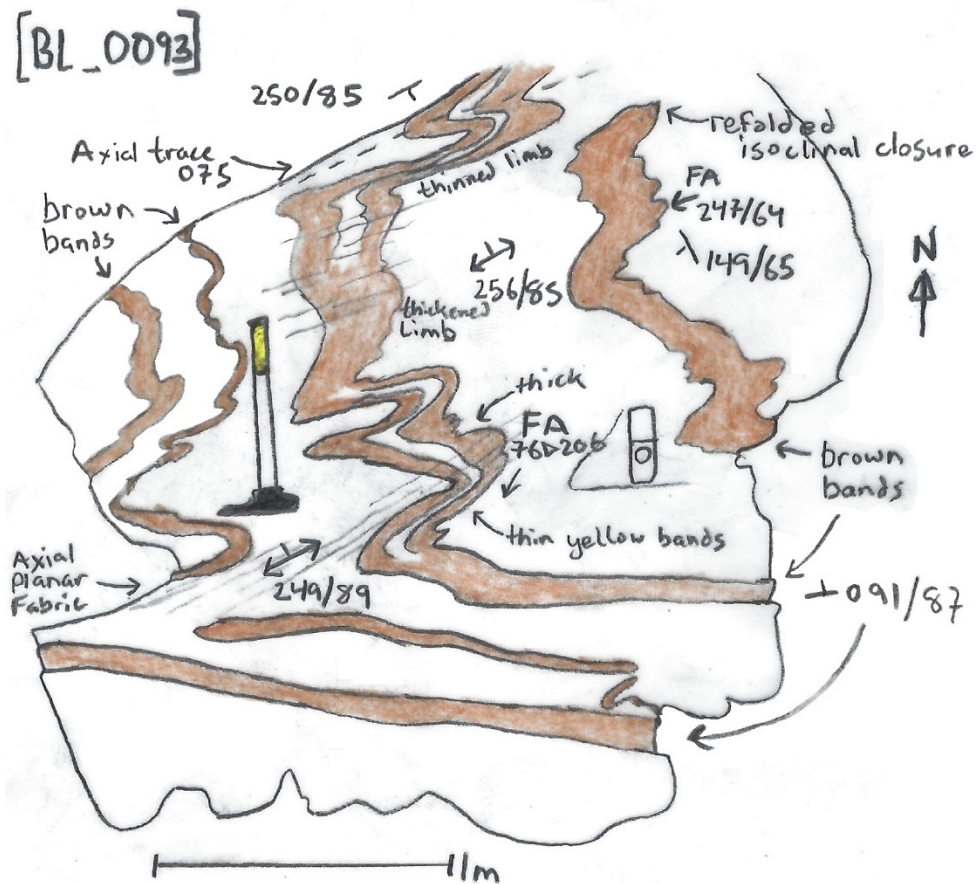 [BL_0093]
250/85
Axial trace
075
brown
bands
thinned limb
refolded
isoclinal closure
FA
247/64
149/65
256/85
N
thickened
Limb
thick
FA
76▷206
brown
bands
thin yellow bands
Axial
Planar
Fabric
249/89
091/87
1m